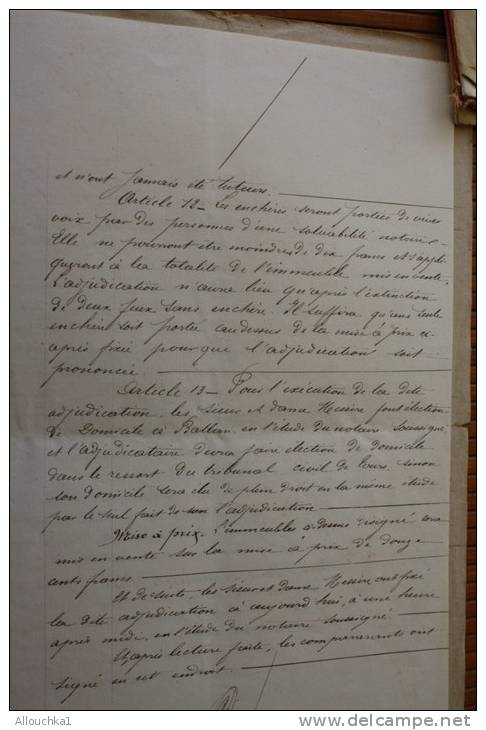 et n'ont jamais été tuteurs.
Article 12 - Les enchères seront portées de vives
voix par des personnes d'une solvabilité notoire.
Elle ne pourront être moindres de dix francs et s'appli-
queront à la totalité de l'immeuble mis en vente.
L'adjudication n'aura lieu qu'après l'extinction
de deux feux sans enchère. Il suffira qu'une seule
enchère soit portée au dessus de la mise à prix ci-
après fixée pour que l'adjudication soit
prononcée
Article 13 - Pour l'exécution de la dite
adjudication, les sieur et dame font élection
de Domicile à Ballan, en l'étude du notaire soussigné
et l'adjudicataire devra faire élection de domicile
dans le ressort du tribunal civil de Tours, sinon
son domicile sera élu de plein droit en la même étude
par le seul fait de l'adjudication
Mise à prix. L'immeubles ci-dessus désigné sera
mis en vente sur la mise à prix de douze
cents francs
Et de suite, les sieur et dame ont fixé
la dite adjudication à aujourd'hui, à une heure
après midi, en l'étude du notaire soussigné
Et après lecture faite, les comparants ont
signé en cet endroit.
Allouchka1
© www.delcampe.net